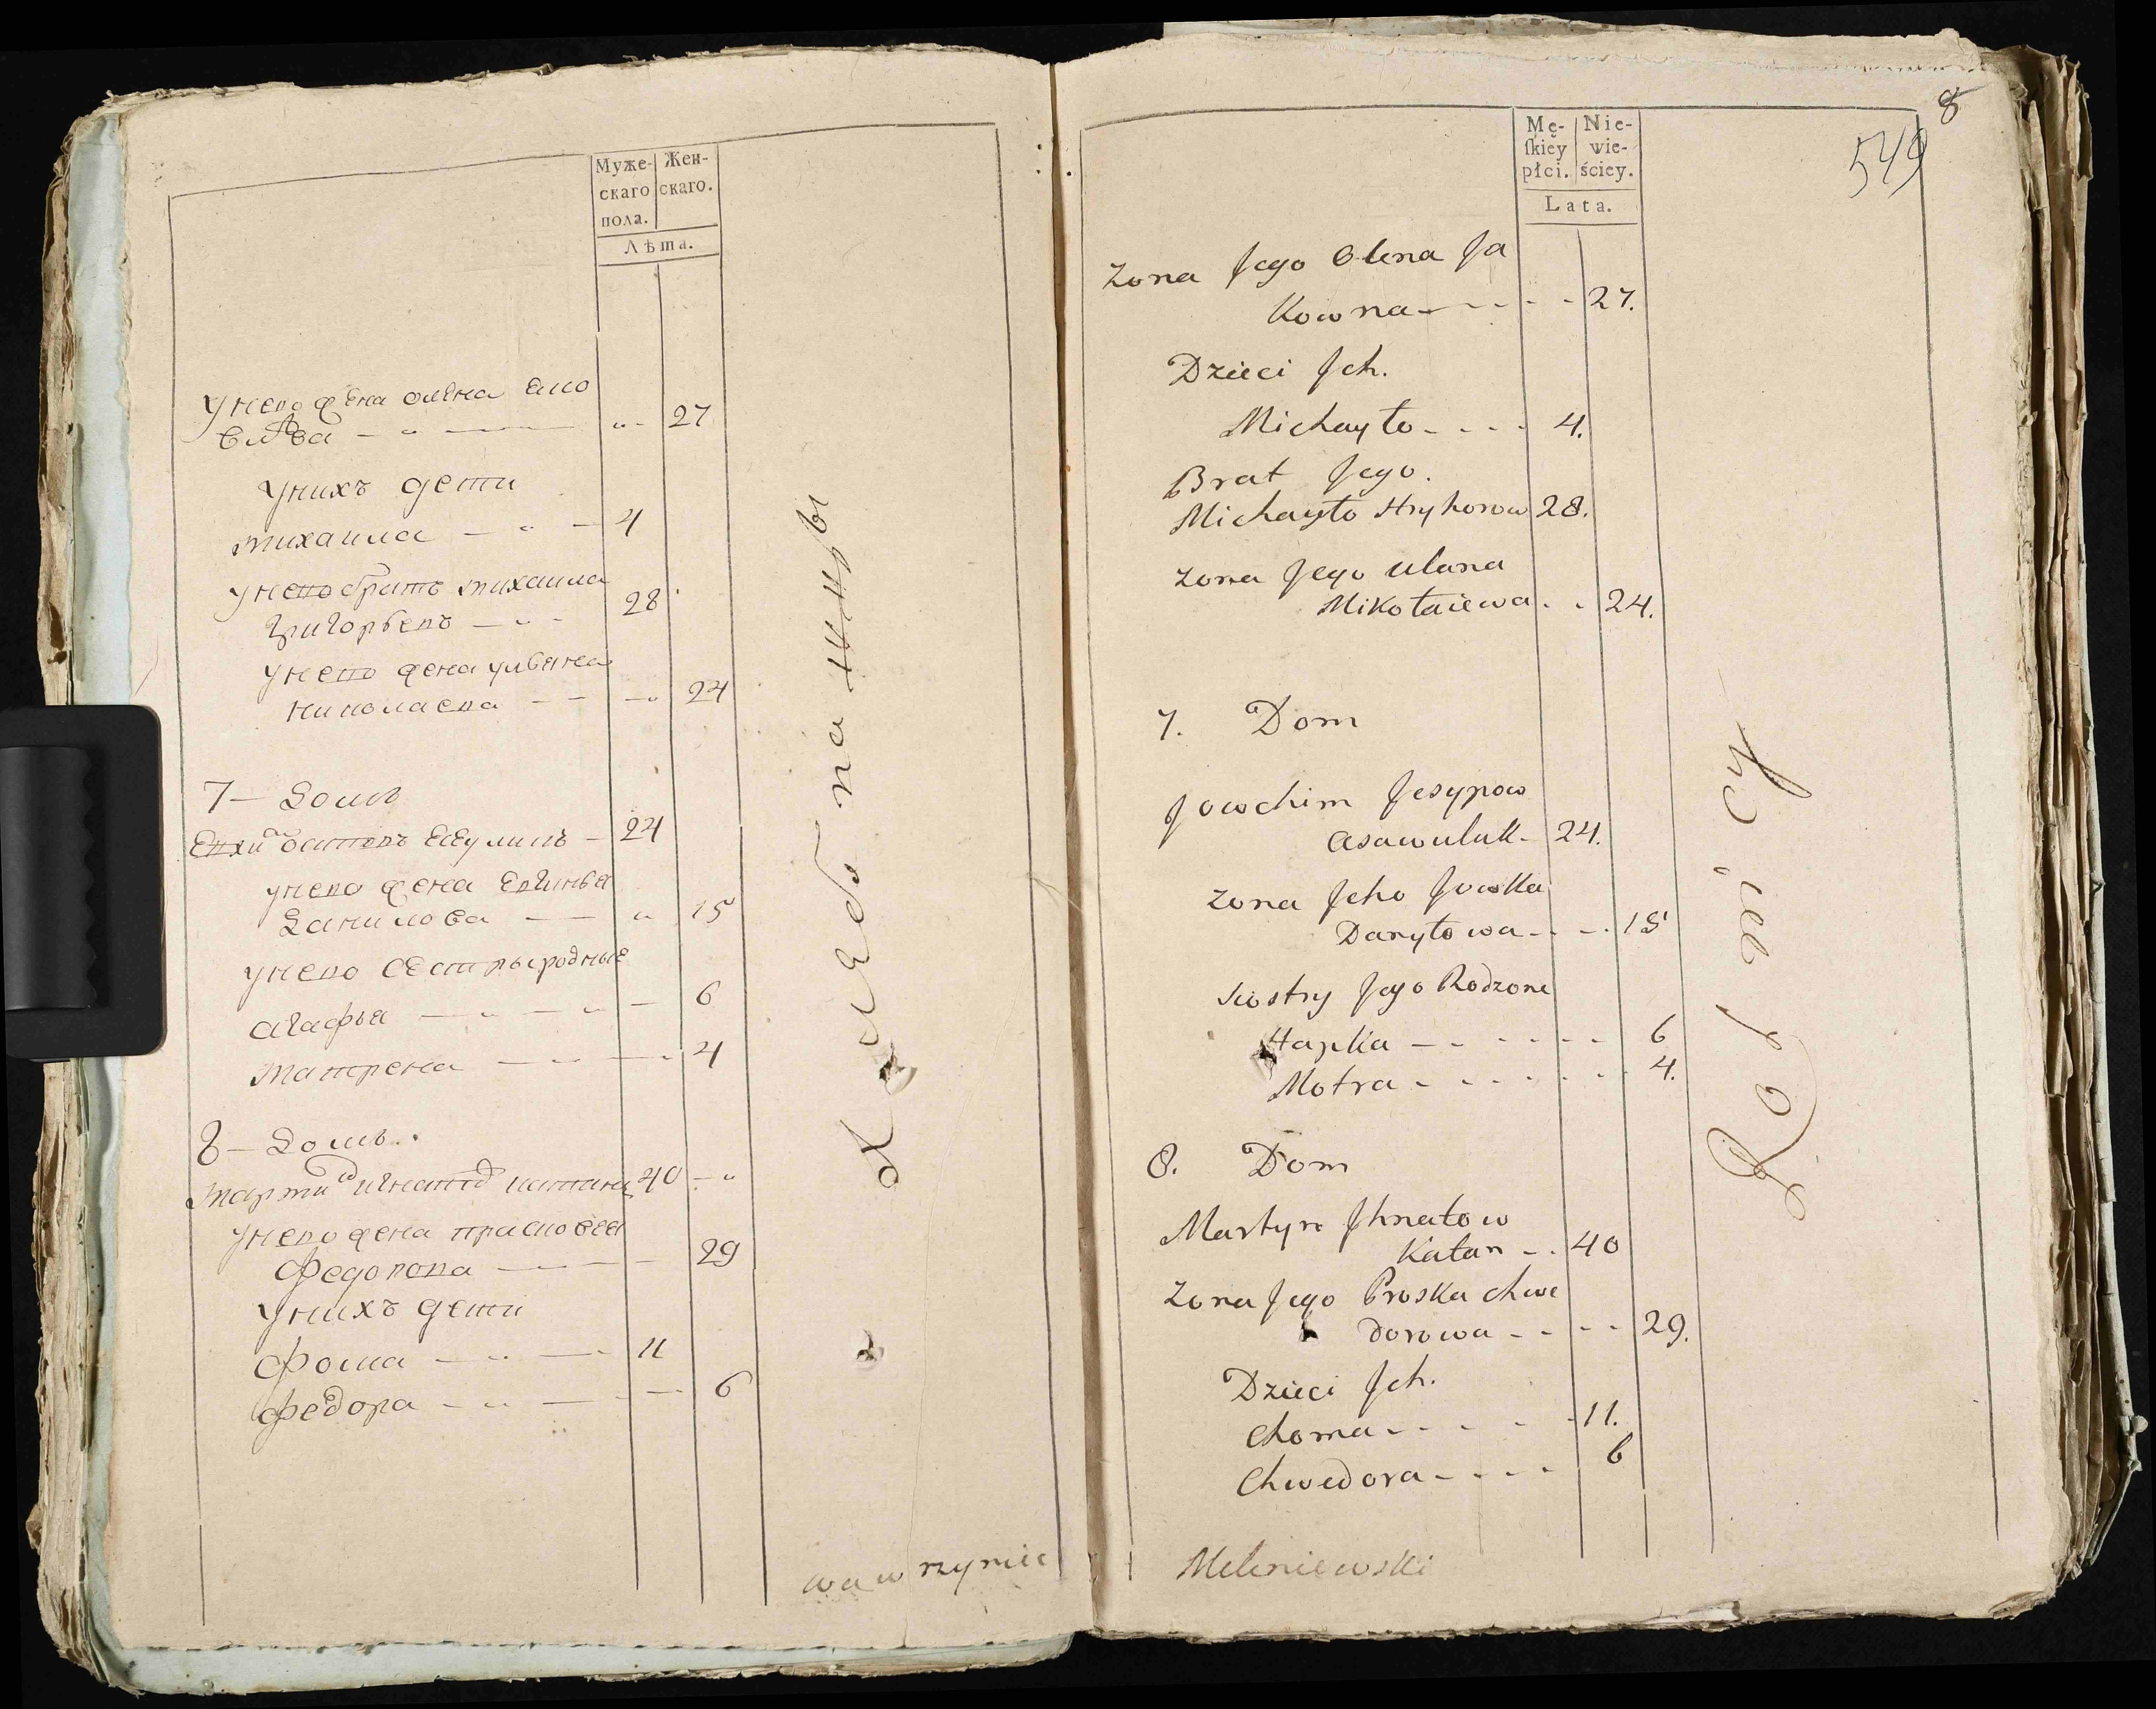 Муже- Жен-
скаго скаго.
пола.
Лѣта.
унево жена олена Яко
влѣва 27
унихъ дети
михаила 4
унево братъ михаила
Григорьевъ 28
унево жена ульяна
николаева 24
7 — Домъ
Ехимъ Есауликъ — 24
унево жена Евгинья
Данилова 15
унево сестры родные
агафья 6
матрена 4
8 — Домъ.
мартинъ игнатовъ 40
унево жена прасковея
Федорова 29
унихъ дети
Фома 11
Федора 6
wawrzyniec
8
549
Mę- Nie-
ſkiey wie-
płci. ściey.
Lata.
Zona Jego Olena Ja
kowna 27.
Dzieci Jch.
Michayło 4.
Brat Jego.
Michayło Hryhorow 28.
Zona Jego Ulana
Mikołaiewa 24.
7. Dom
Jowchim Jesypow
Asawuluk 24.
Zona Jeho Jowka
Danyłowa 15
Siostry Jego Rodzone
Hapka 6
Motra 4.
8. Dom
Martyn Jhnatow
Katan 40
Zona Jego Proska Chwe
dorowa 29.
Dzieci Jch.
Choma 11.
Chwedora 6
Meleniewski